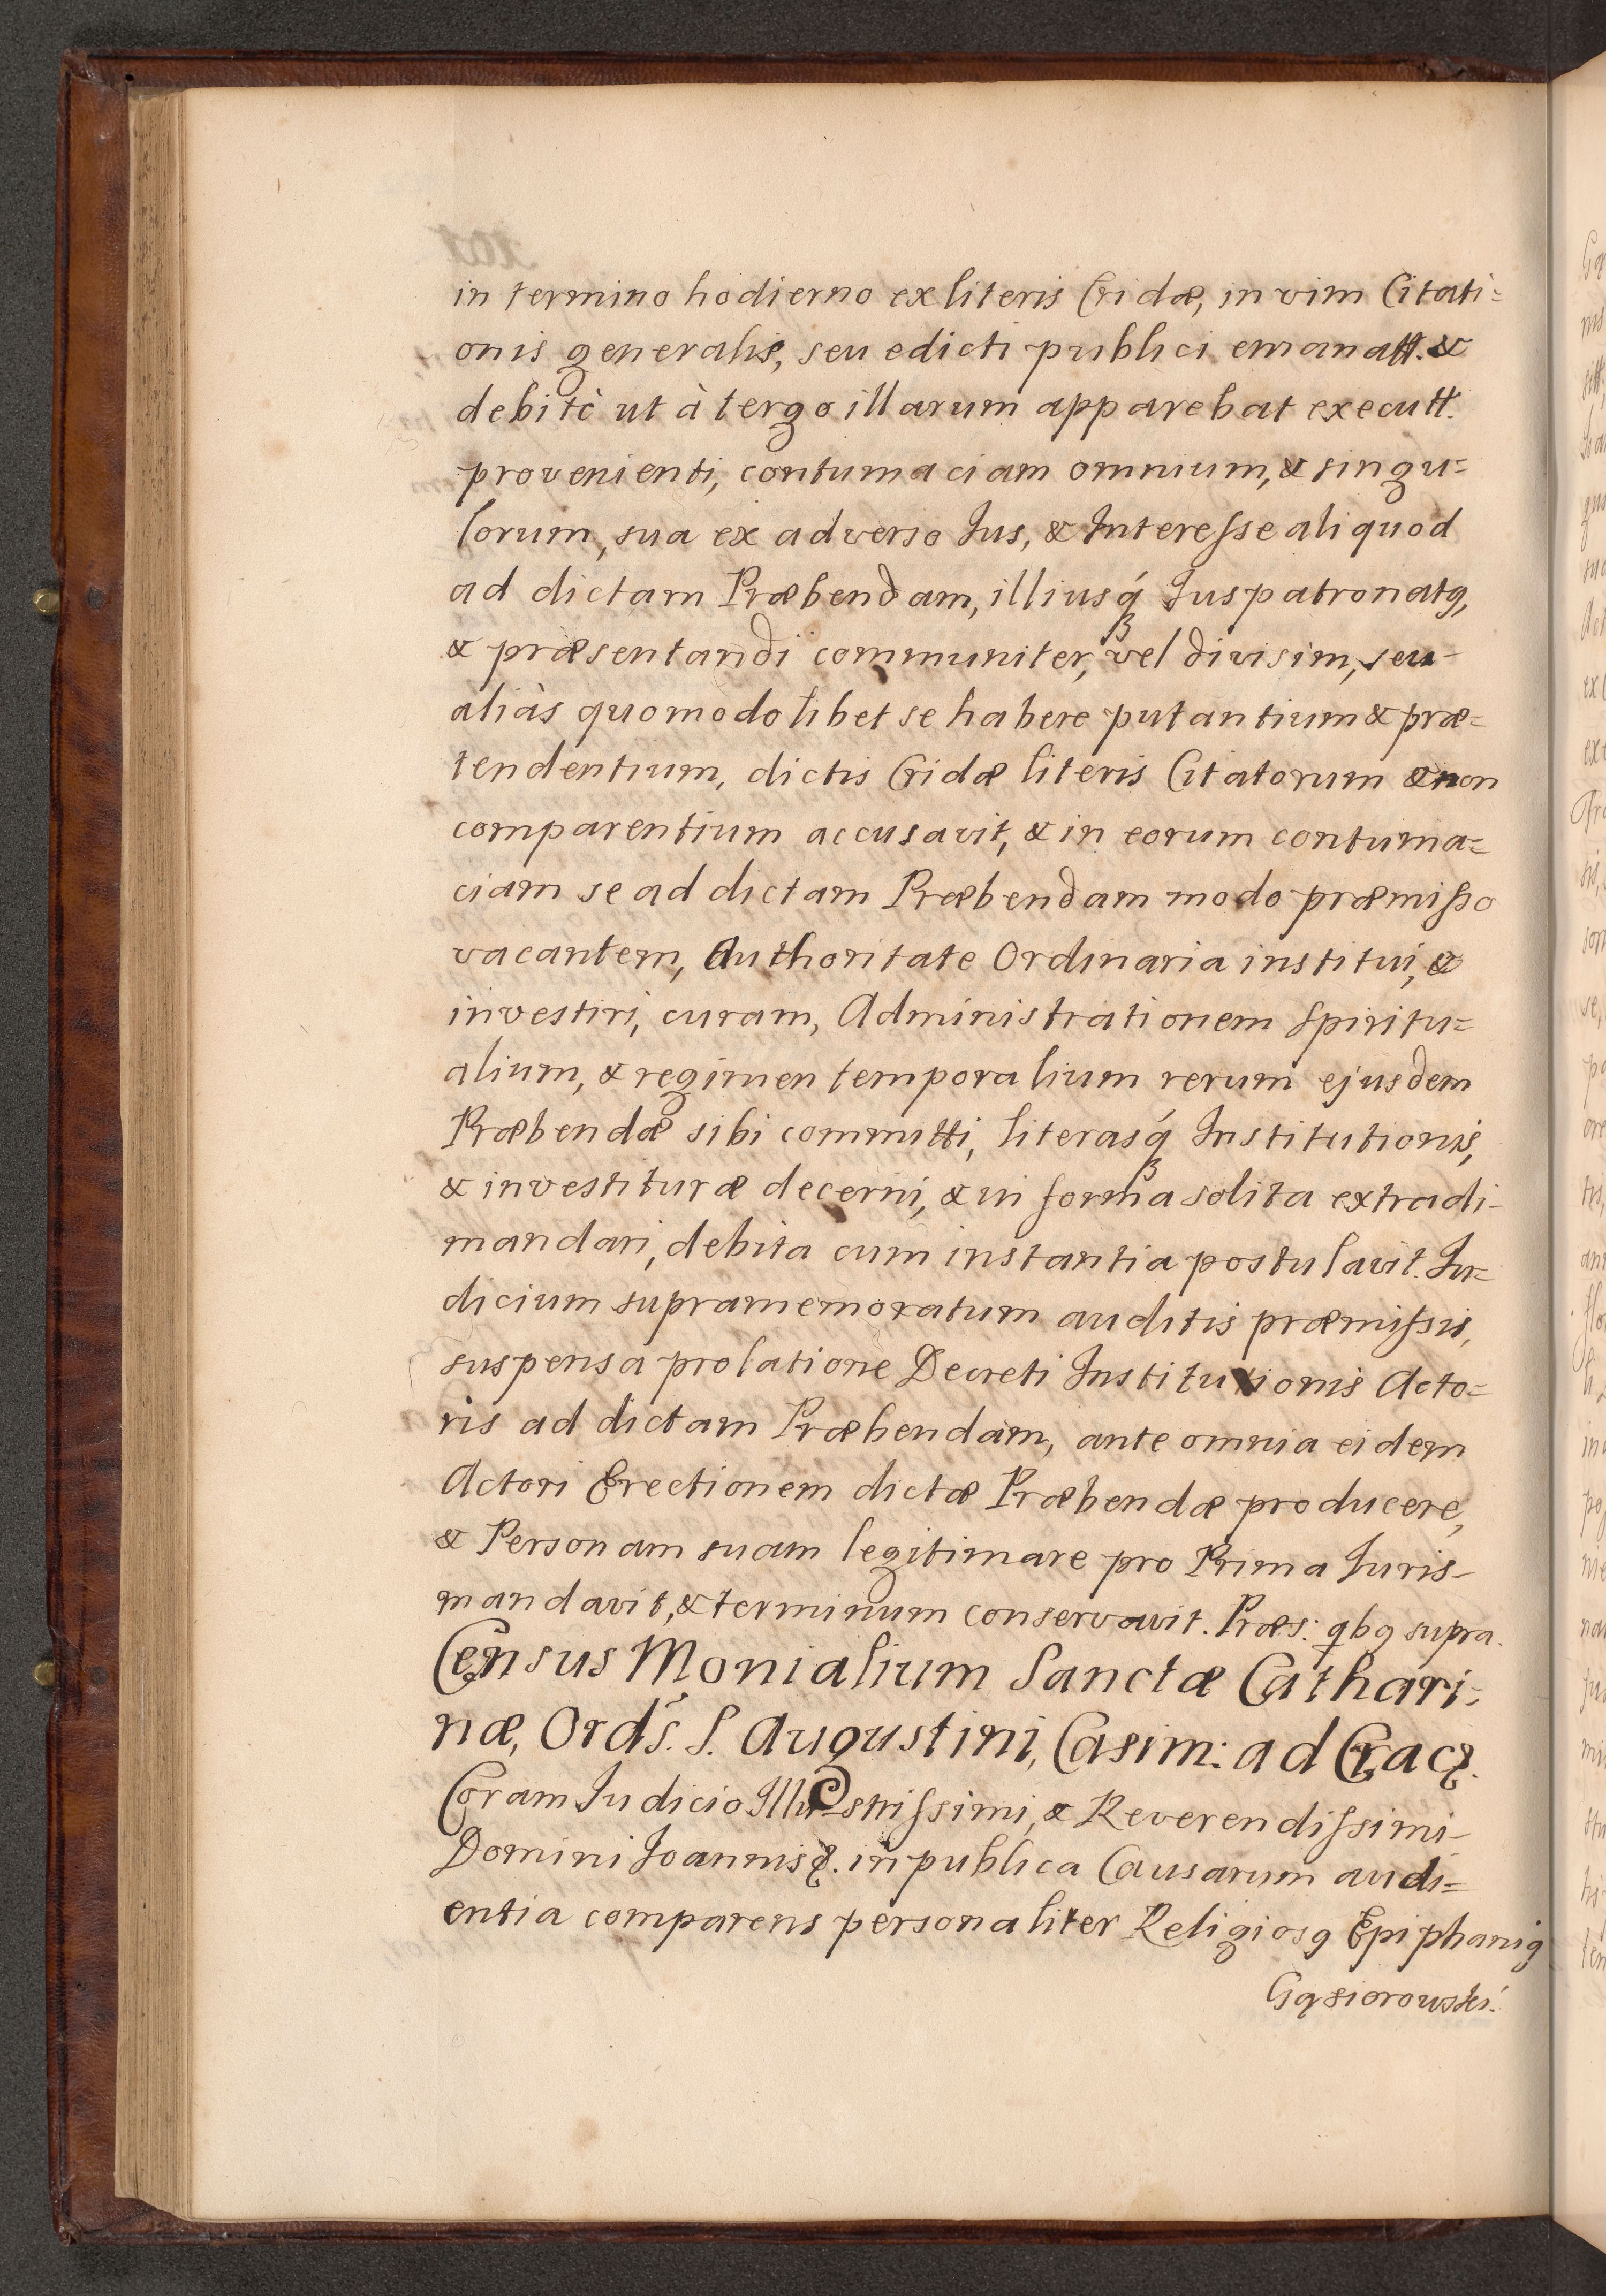 in termino hodierno ex literis Cridæ, in vim Citati=
onis generalis, seu edicti publici emanatt. &
debitè ut à tergo illarum apparebat executt.
provenienti, contumaciam omnium, & singu=
lorum, sua ex adverso Jus, & Interesse aliquod
ad dictam Præbendam, illiusq́ꝫ Juspatronatꝰ,
& præsentandi communiter, vel divisim, seu
aliàs quomodolibet se habere putantium & præ=
tendentium, dictis Cridæ literis Citatorum & non
comparentium accusavit, & in eorum contuma=
ciam se ad dictam Præbendam modo præmisso
vacantem, Authoritate Ordinaria institui, &
investiri, curam, Administrationem Spiritu=
alium, & regimen temporalium rerum ejusdem
Præbendæ sibi committi, literasq́ꝫ Institutionis,
& investituræ decerni, & in forma solita extradi
mandari, debita cum instantia postulavit. Ju=
dicium supramemoratum auditis præmissis,
suspensa prolatione Decreti Institutionis Acto=
ris ad dictam Præbendam, ante omnia eidem
Actori Erectionem dictæ Præbendæ producere,
& Personam suam legitimare pro Prima Juris
mandavit, & terminum conservavit. Præs: qbꝰ supra.
Census Monialium Sanctæ Cathari=
næ, Ord́s. S. Augustini, Casim: ad Crac&.
Coram Judicio Illustrissimi, & Reverendissimi
Domini Joannis &. in publica Causarum audi=
entia comparens personaliter Religiosꝰ Epiphaniꝰ
Gąsiorowski.